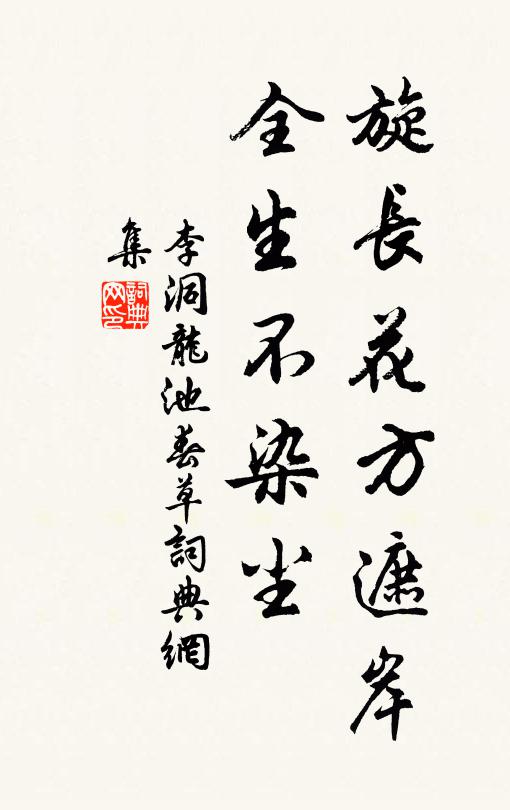 旋長花方遮岸
全生不染尘
李洞龍池春草詞典網
集
詞典网印